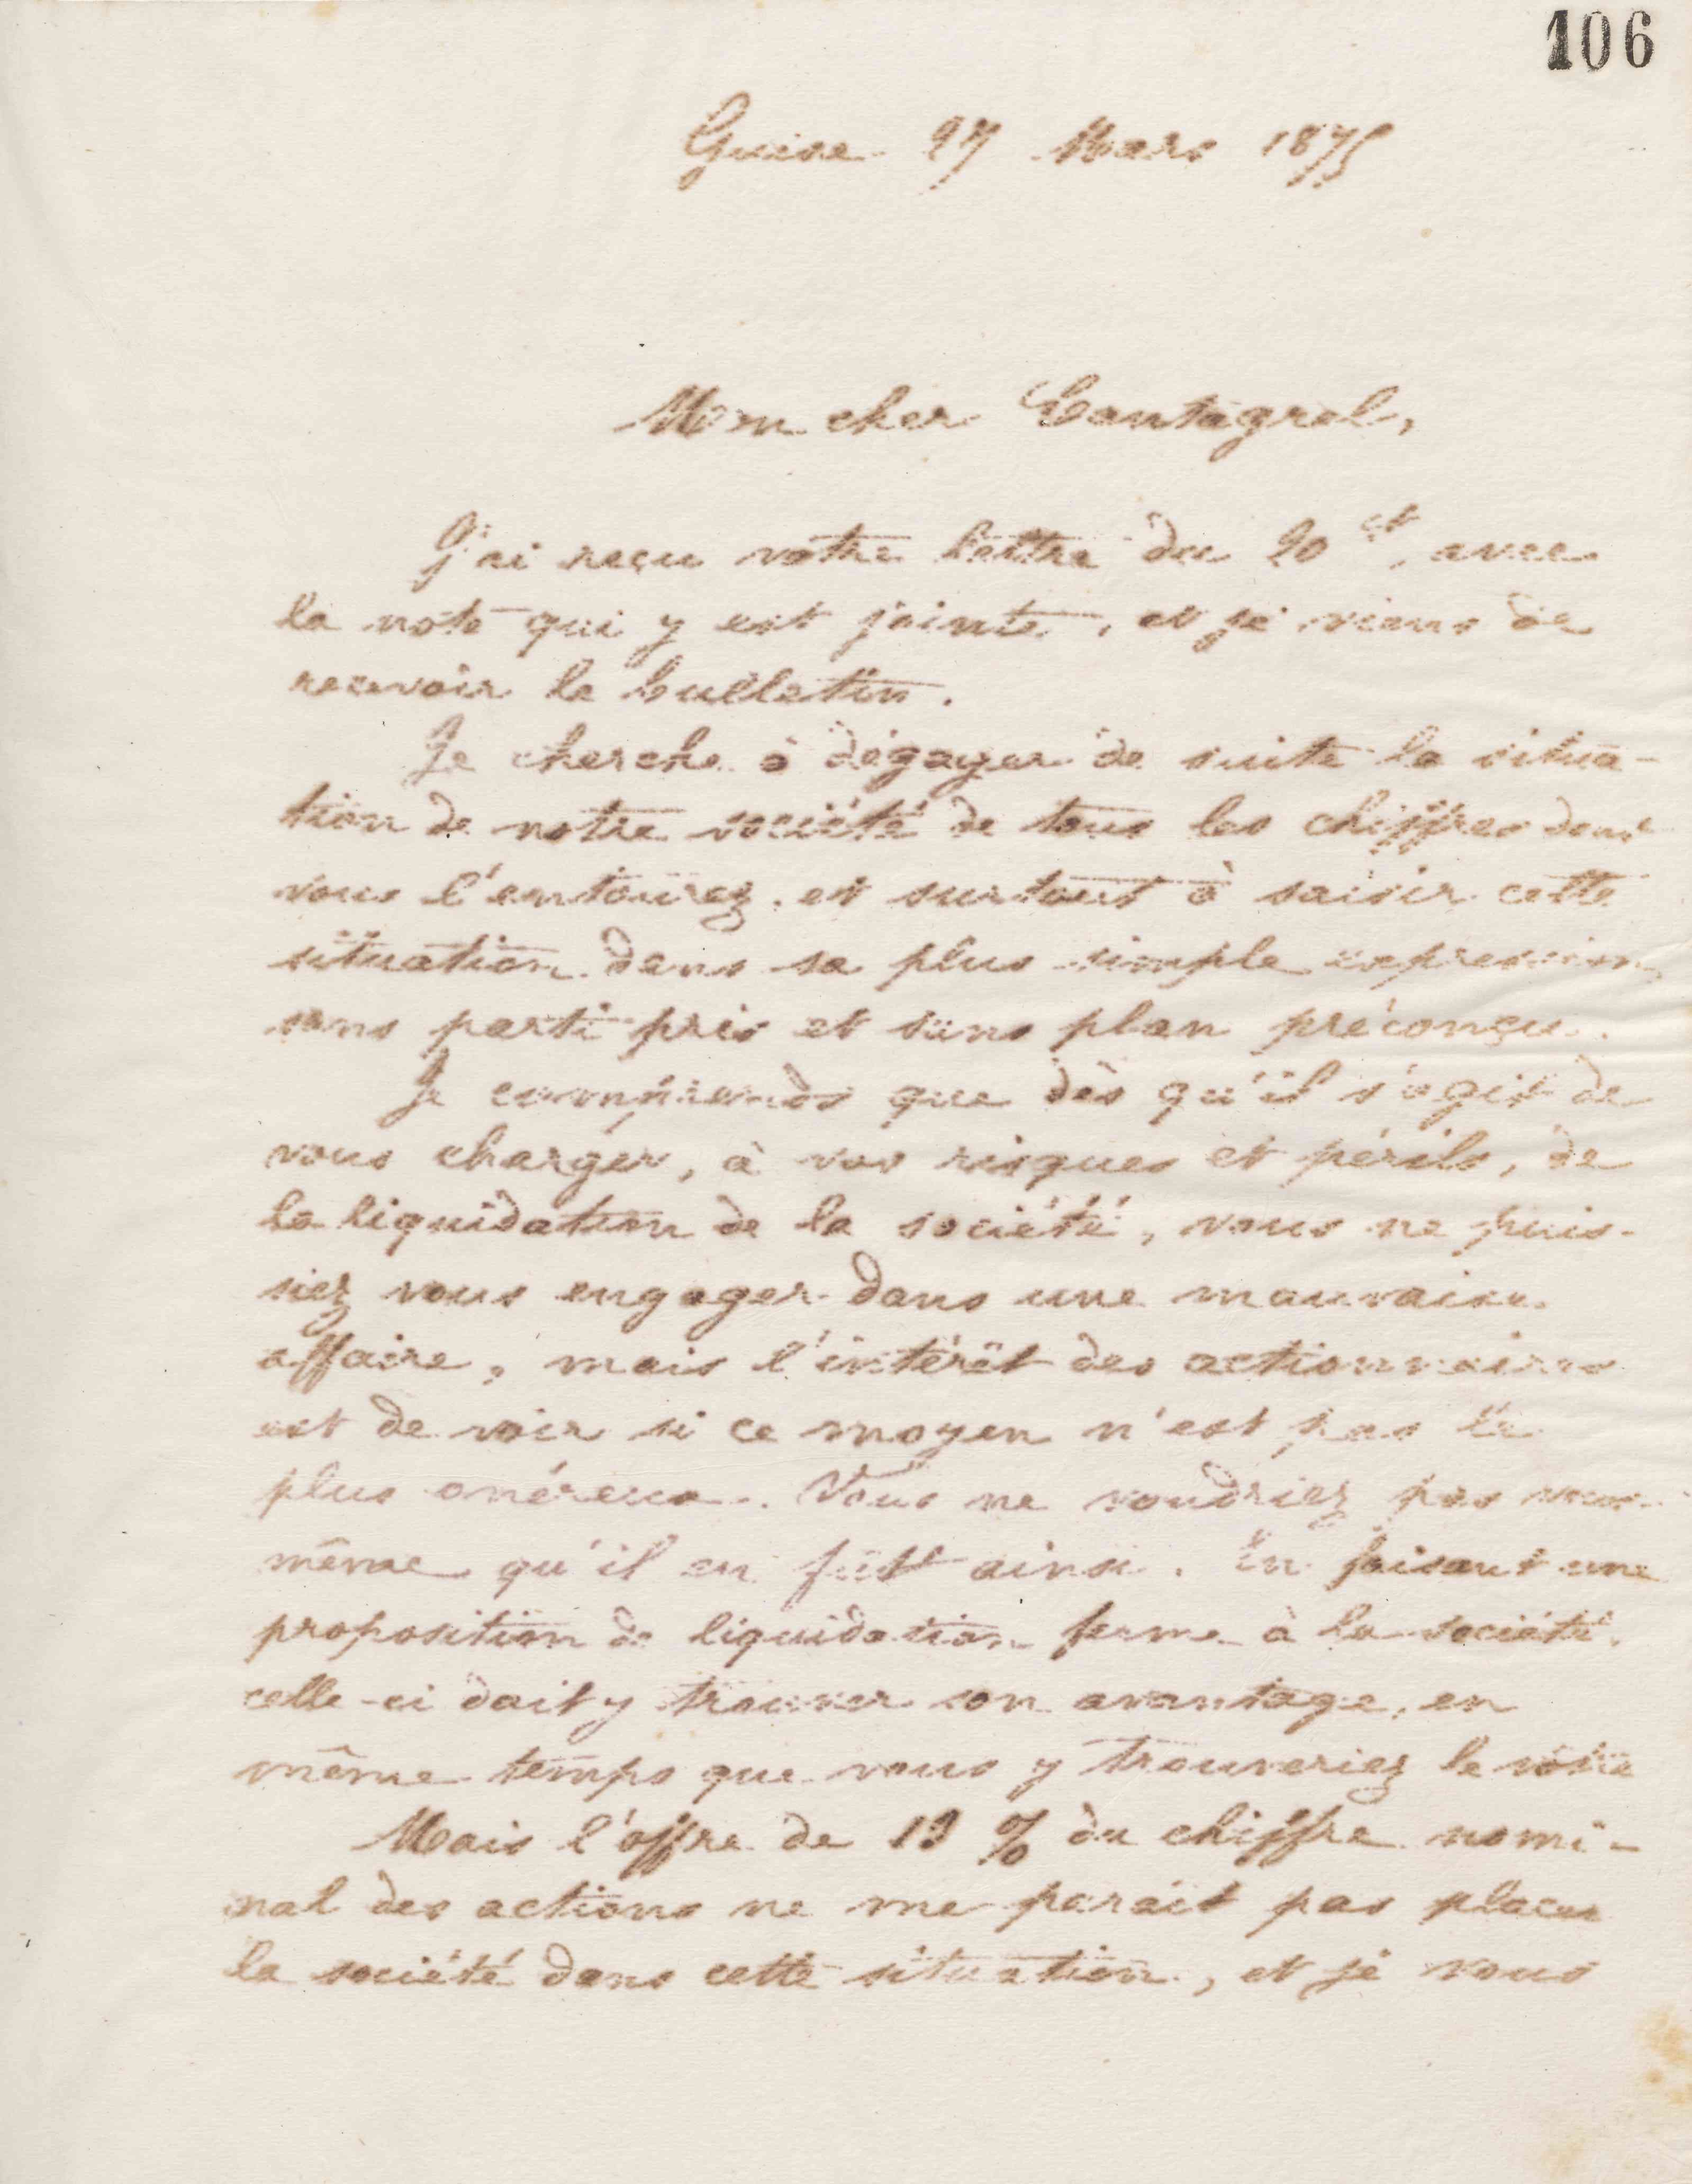 106
Guise 27 Mars 1875
Mon cher Cantagrel,
J'ai reçu votre lettre du 20 ct, avec
la note qui y est jointe, et je viens de
recevoir le bulletin.
Je cherche à dégager de suite la situa-
tion de notre société de tous les chiffres dont
vous l'entourez, et surtout à saisir cette
situation dans sa plus simple expression,
sans parti pris et sans plan préconçu.
Je comprends que dès qu'il s'agit de
vous charger, à vos risques et périls, de
la liquidation de la société, vous ne puis-
siez vous engager dans une mauvaise
affaire, mais l'intérêt des actionnaires
est de voir si ce moyen n'est pas le
plus onéreux. Vous ne voudriez pas vous-
même qu'il en fût ainsi. En faisant une
proposition de liquidation ferme à la société,
celle-ci doit y trouver son avantage, en
même temps que vous y trouveriez le vôtre
Mais l'offre de 13 % du chiffre nomi-
nal des actions ne me parait pas placer
la société dans cette situation, et je vous